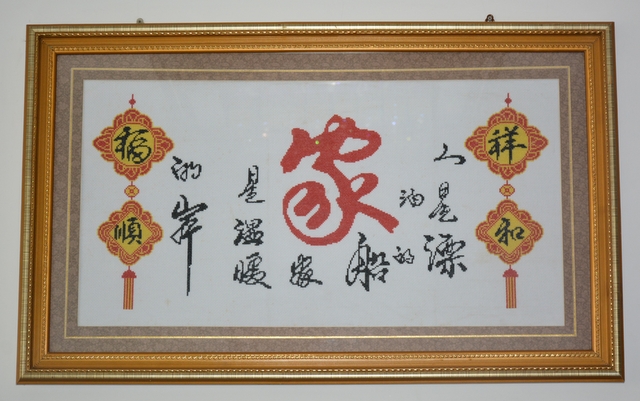 祥和
家
人是漂
泊的
船
家
是温暖
的岸
福順